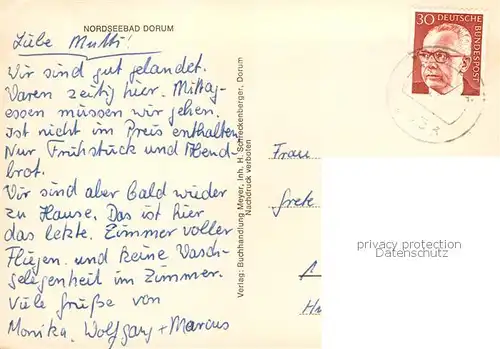 NORDSEEBAD DORUM
Liebe Mutti!
Wir sind gut gelandet.
Waren zeitig hier. Mittag-
essen müssen wir gehen.
Ist nicht im Preis enthalten.
Nur Frühstück und Abend-
brot.
Wir sind aber bald wieder
zu Hause. Das ist hier
das letzte. Zimmer voller
Fliegen und keine Wasch-
gelegenheit im Zimmer.
Viele Grüße von
Monika, Wolfgang + Marcus
Verlag: Buchhandlung Meyer, Inh. H. Schreckenberger, Dorum
Nachdruck verboten
30 DEUTSCHE
BUNDESPOST
Frau
Grete
privacy protection
Datenschutz